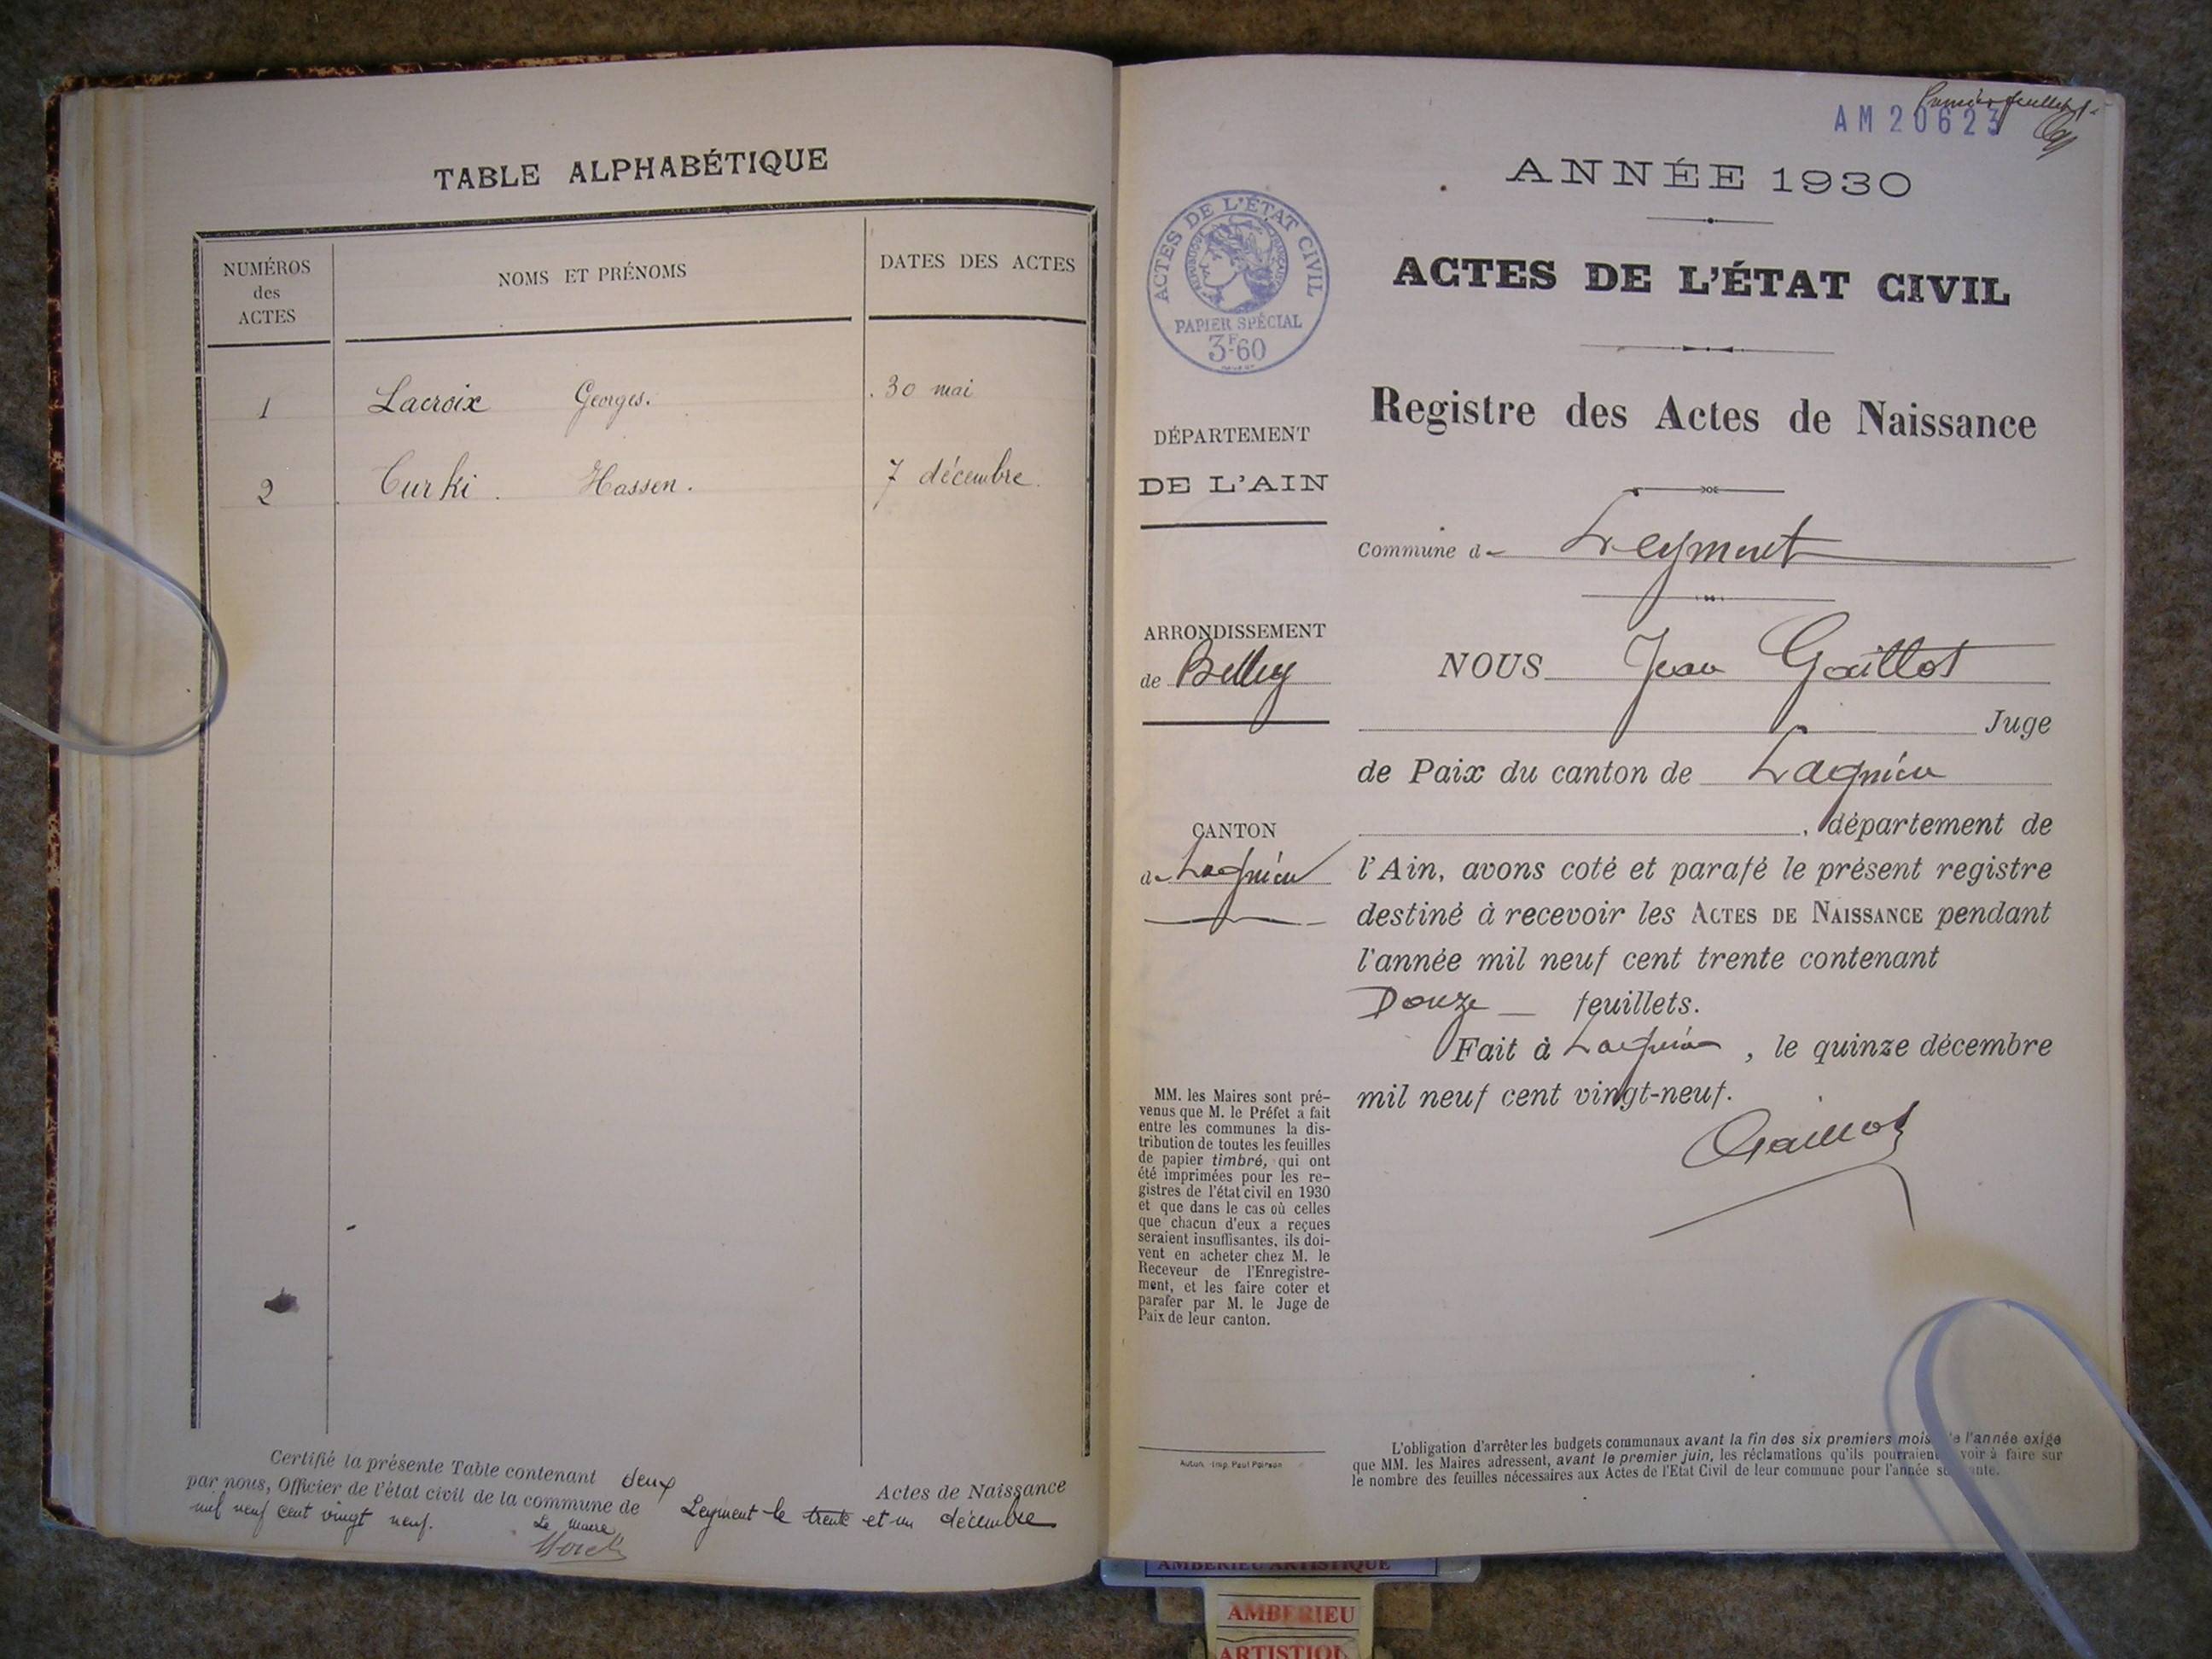 TABLE ALPHABÉTIQUE
NUMÉROS
des
ACTES
NOMS ET PRÉNOMS
DATES DES ACTES
1 Lacroix Georges. 30 mai
2 Turki. Hassen. 7 décembre.
Certifié la présente Table contenant deux Actes de Naissance
par nous, Officier de l'état civil de la commune de Leyment le trente et un décembre
mil neuf cent vingt neuf.
Le Maire
Morel
Premier feuillet
AM 20623
ANNÉE 1930
ACTES DE L'ÉTAT CIVIL
Registre des Actes de Naissance
ACTES DE L'ÉTAT CIVIL
RÉPUBLIQUE FRANÇAISE
PAPIER SPÉCIAL
3F60
DÉPARTEMENT
DE L'AIN
ARRONDISSEMENT
de Belley
CANTON
de Lagnieu
MM. les Maires sont pré-
venus que M. le Préfet a fait
entre les communes la dis-
tribution de toutes les feuilles
de papier timbré, qui ont
été imprimées pour les re-
gistres de l'état civil en 1930
et que dans le cas où celles
que chacun d'eux a reçues
seraient insuffisantes, ils doi-
vent en acheter chez M. le
Receveur de l'Enregistre-
ment, et les faire coter et
parafer par M. le Juge de
Paix de leur canton.
Autun. - Imp. Paul Poirson
Commune de Leyment
NOUS Jean Gaillot
Juge
de Paix du canton de Lagnieu
, département de
l'Ain, avons coté et parafé le présent registre
destiné à recevoir les ACTES DE NAISSANCE pendant
l'année mil neuf cent trente contenant
Douze feuillets.
Fait à Lagnieu, le quinze décembre
mil neuf cent vingt-neuf.
Gaillot
L'obligation d'arrêter les budgets communaux avant la fin des six premiers mois de l'année exige
que MM. les Maires adressent, avant le premier juin, les réclamations qu'ils pourraient avoir à faire sur
le nombre des feuilles nécessaires aux Actes de l'Etat Civil de leur commune pour l'année suivante.
AMBERIEU ARTISTIQUE
AMBERIEU
ARTISTIQU